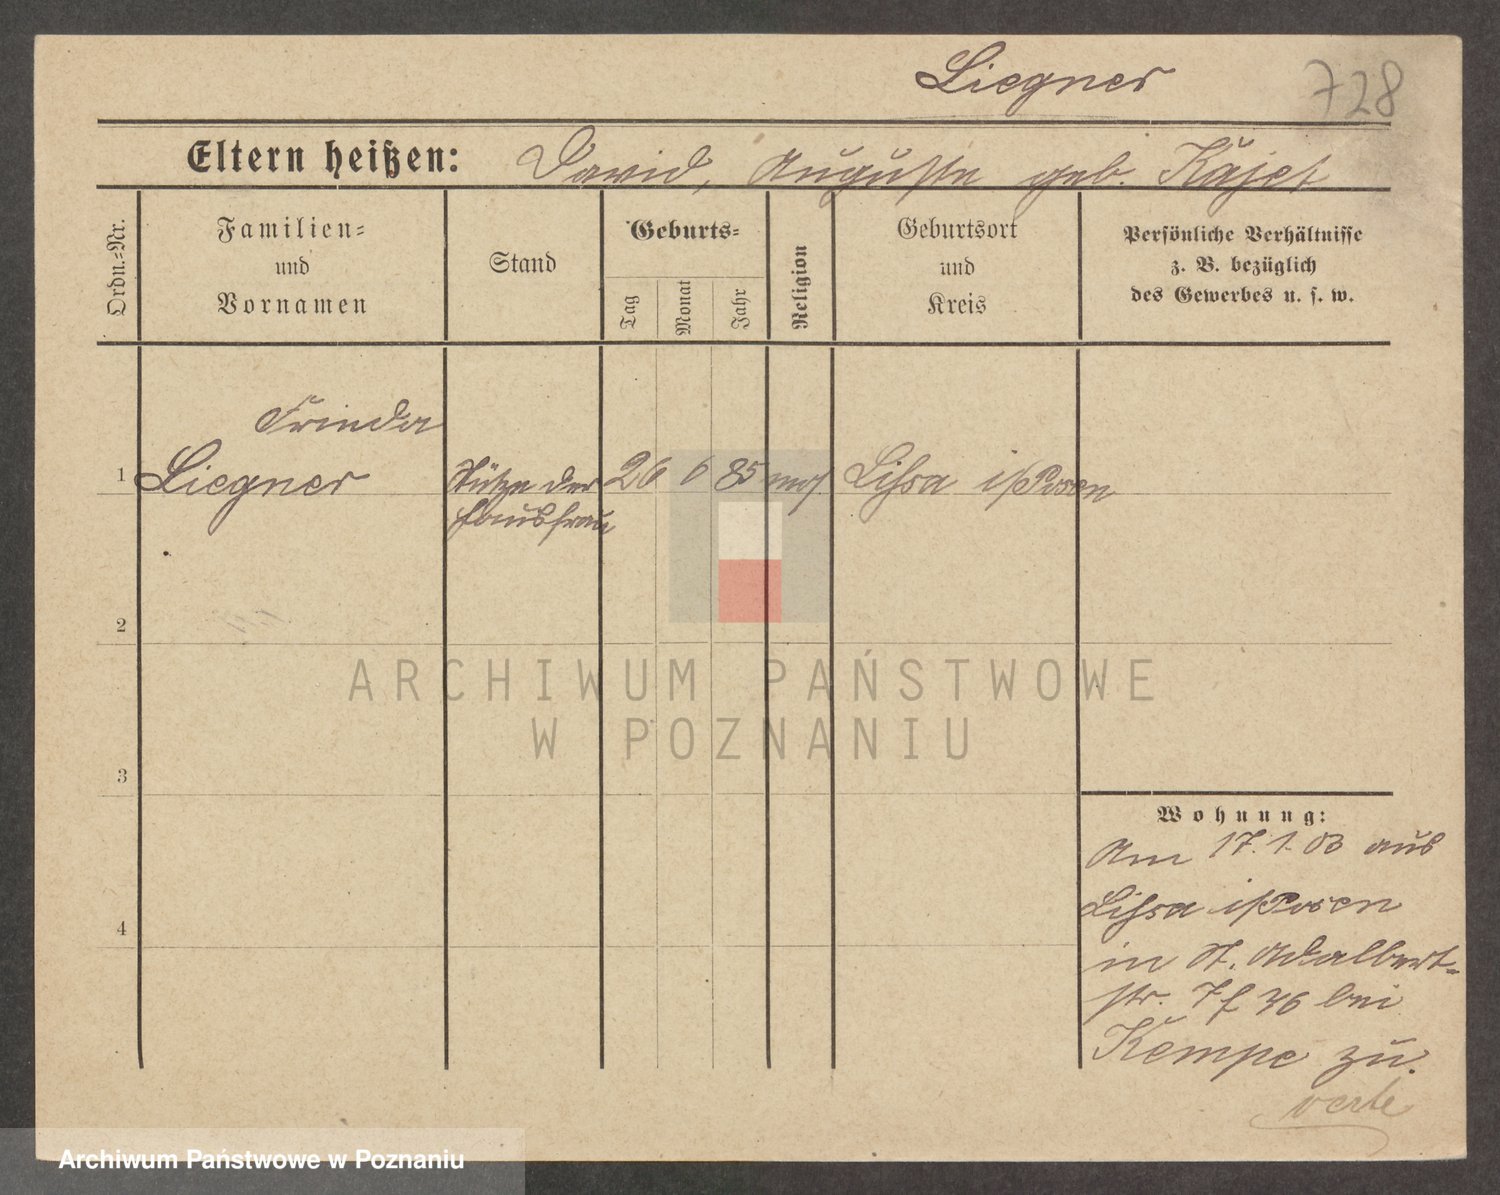 Liegner 728
Eltern heißen: David, Auguste geb.
Ordn.-Nr.
Familien-
und
Vornamen
Stand
Geburts-
Tag
Monat
Jahr
Religion
Geburtsort
und
Kreis
Persönliche Verhältnisse
z. B. bezüglich
des Gewerbes u. s. w.
Frieda
1 Liegner Stütze der 26 6 85 mos Lissa i/Posen
Hausfrau
2
ARCHIWUM PAŃSTWOWE
W POZNANIU
3
4
Wohnung:
Am 17.1.03 aus
Lissa i/Posen
in St. Adalbert-
str. bei
Kempe zu.
verte
Archiwum Państwowe w Poznaniu